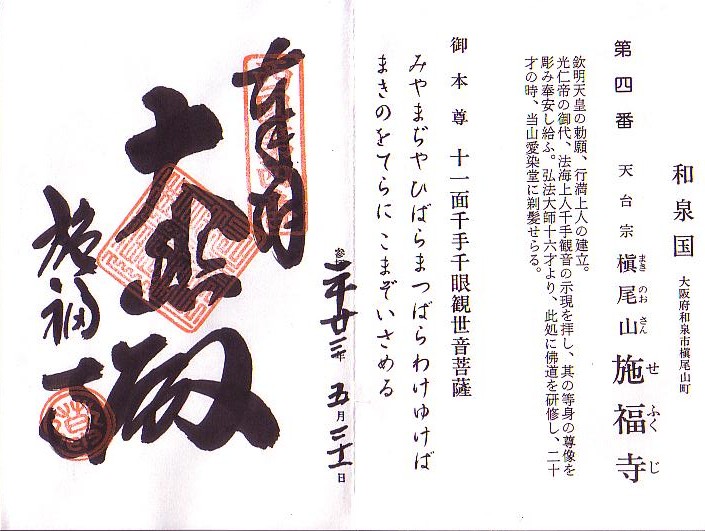 和泉国 大阪府和泉市槇尾山町
第四番 天台宗 槇尾山 施福寺
まきのおさん せふくじ
欽明天皇の勅願、行満上人の建立。
光仁帝の御代、法海上人千手観音の示現を拝し、其の等身の尊像を
彫み奉安し給ふ。弘法大師十六才より、此処に佛道を研修し、二十
才の時、当山愛染堂に剃髪せらる。
御本尊 十一面千手千眼観世音菩薩
みやまぢやひばらまつばらわけゆけば
まきのをてらにこまぞいさめる
二十廿三年五月三十一日
奉拝
大悲殿
施福寺